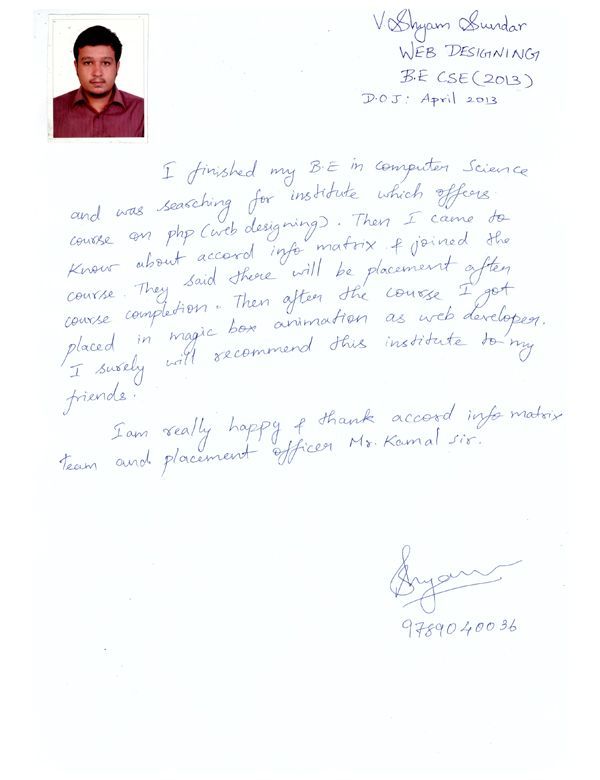 V. Shyam Sundar
WEB DESIGNING
B.E CSE (2013)
D.O.J: April 2013
I finished my B.E in computer Science
and was searching for institute which offers
course on php (web designing). Then I came to
know about accord info matrix & joined the
course. They said there will be placement after
course completion. Then after the course I got
placed in magic box animation as web developer.
I surely will recommend this institute to my
friends.
I am really happy & thank accord info matrix
team and placement officer Mr. Kamal sir.
Shyam
9789040036